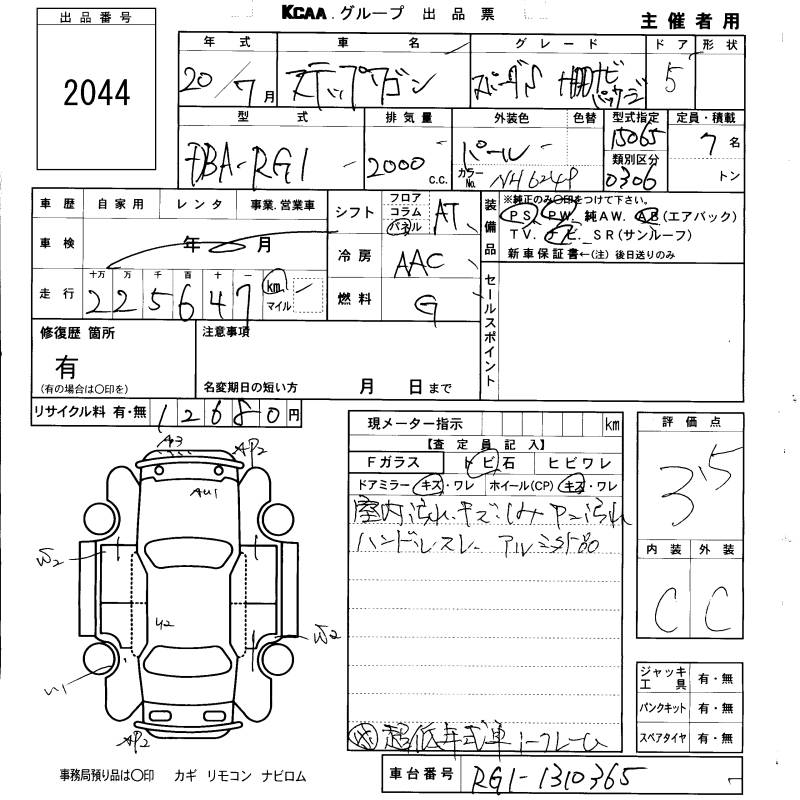 KCAA. グループ 出品票
主催者用
出品番号
2044
年式 車名 グレード ドア 形状
20/7月 ステップワゴン スパーダS HDDナビパッケージ 5
型式 排気量 外装色 色替 型式指定 定員・積載
DBA-RG1 2000 c.c. パール 15065 7名
カラーNo. NH624P 類別区分 0306 トン
車歴 自家用 レンタ 事業.営業車
シフト フロア コラム パネル AT
装備品 ※純正のみ〇印をつけて下さい。
PS. PW. 純AW. AB(エアバック)
TV. SR(サンルーフ)
新車保証書←(注) 後日送りのみ
車検 年 月
冷房 AAC
走行 十万 万 千 百 十 一
225647 km マイル
燃料 G
セールスポイント
修復歴 箇所
有
(有の場合は〇印を)
注意事項
名変期日の短い方 月 日まで
リサイクル料 有・無 12680円
現メーター指示 km
【査定員記入】
Fガラス トビ石 ヒビワレ
ドアミラー キズ・ワレ ホイール(CP) キズ・ワレ
室内汚れ.キズ.シミ
ハンドルスレ
評価点
3.5
内装 外装
C C
A3
AP2
AU1
W2
U2
W2
AP2
超低年式車
ジャッキ工具 有・無
パンクキット 有・無
スペアタイヤ 有・無
車台番号 RG1-1310365
事務局預り品は〇印 カギ リモコン ナビロム